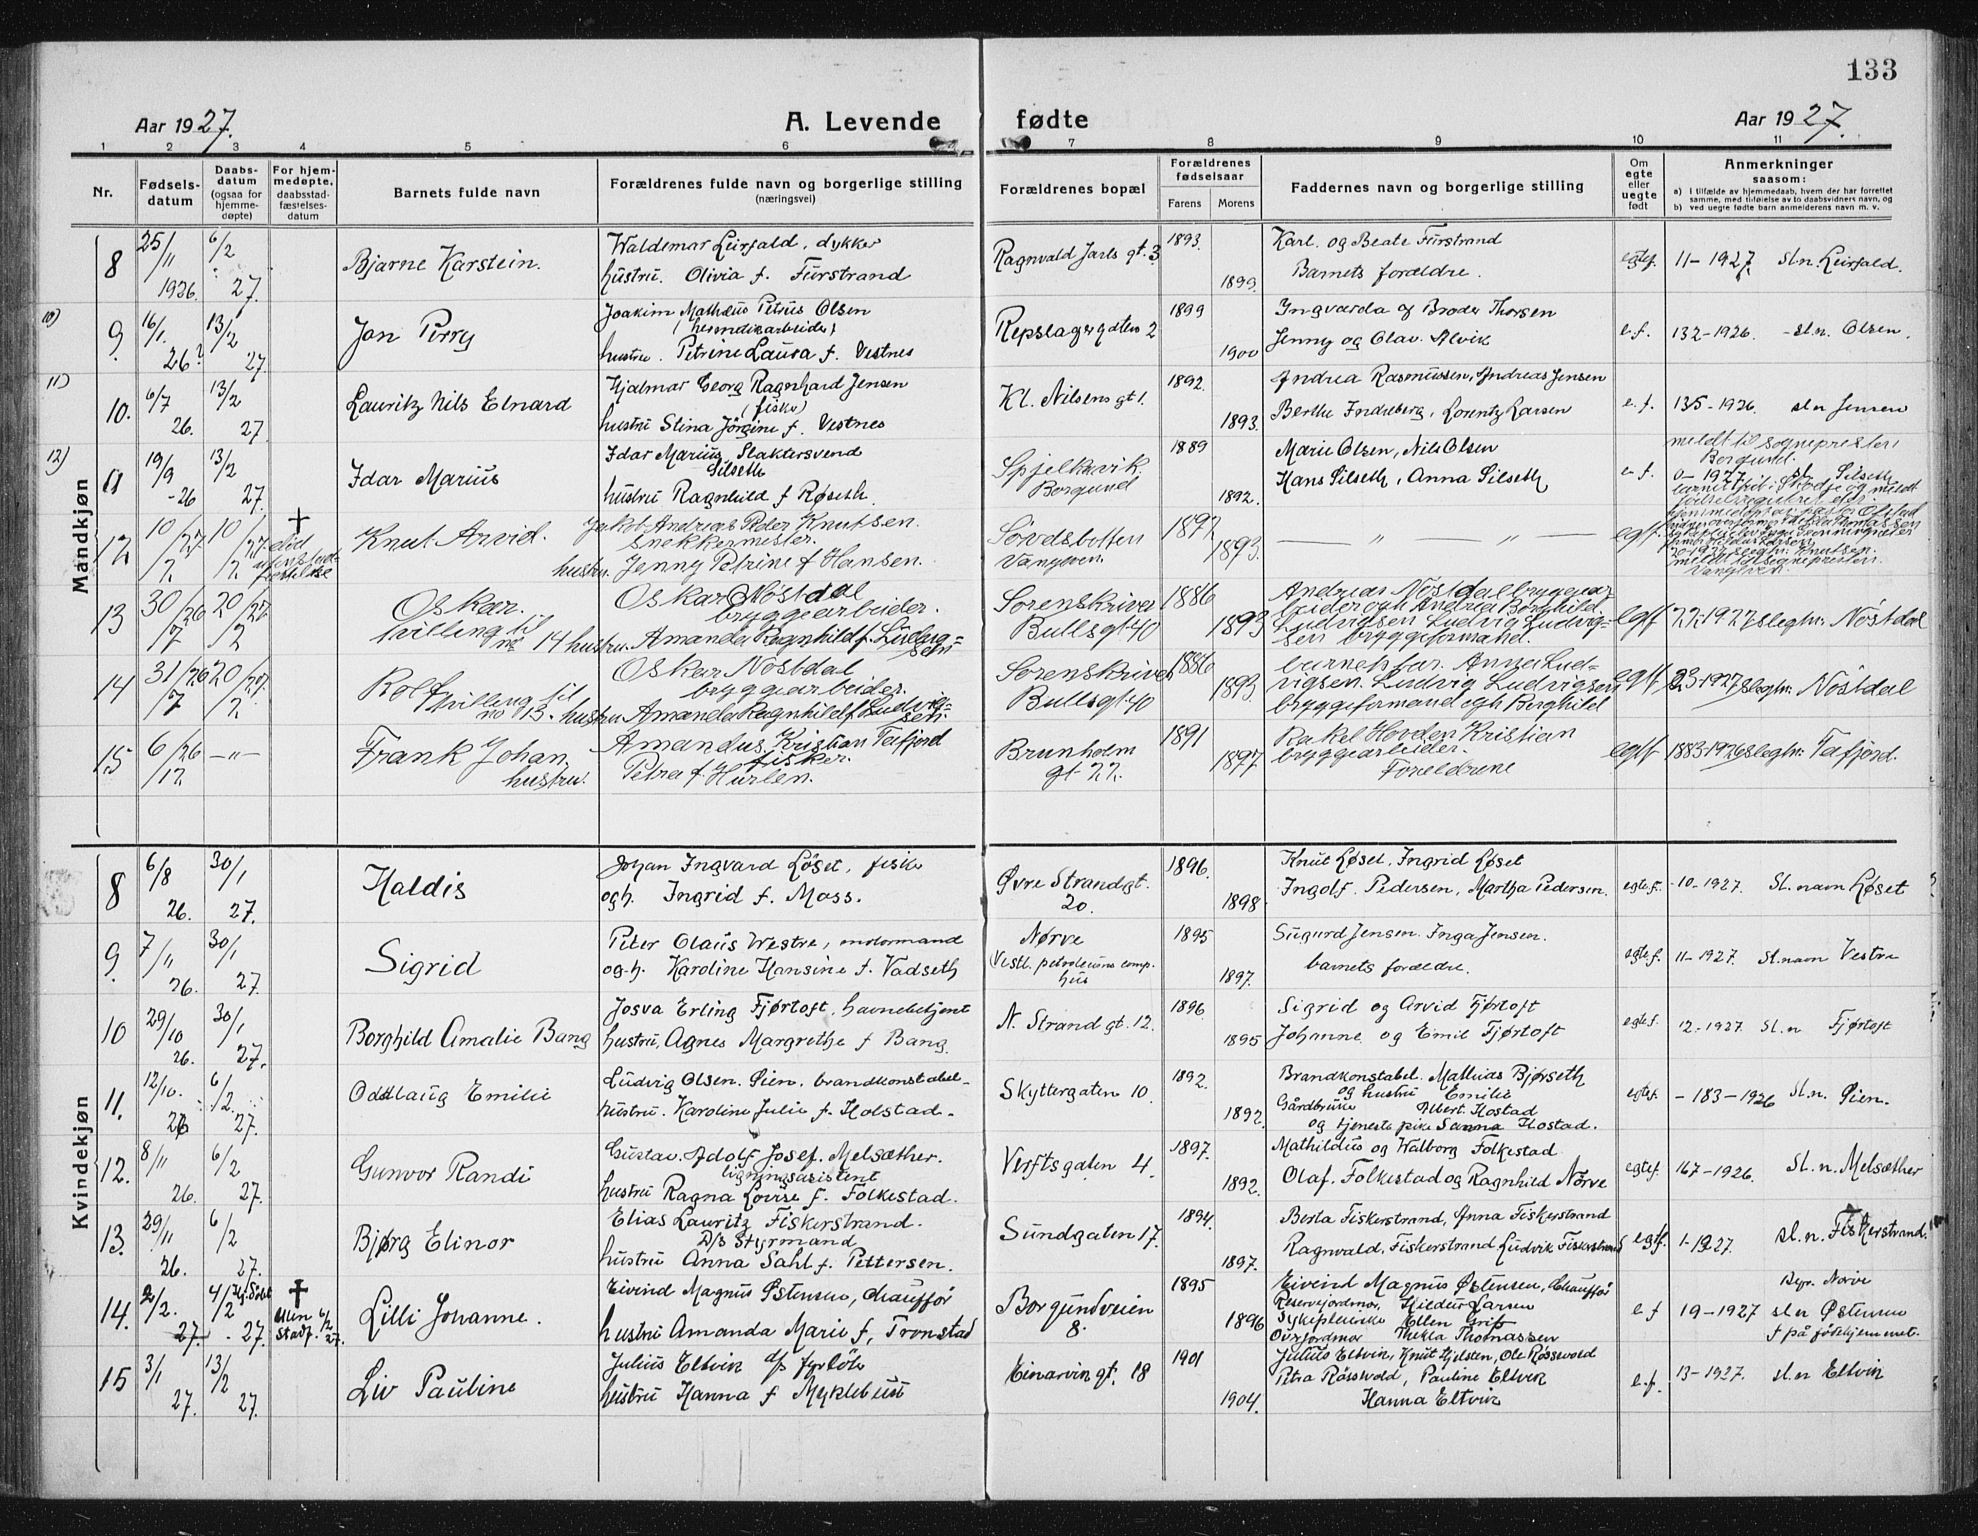 133
Aar 1927. A. Levende fødte Aar 1927.
1 2 3 4 5 6 7 8 9 10 11
Nr. Fødsels-datum Daabs-datum (ogsaa for hjemme-døpte) For hjem-medøpte, daabsstad-fæstelses-datum Barnets fulde navn Forældrenes fulde navn og borgerlige stilling (næringsvei) Forældrenes bopæl Forældrenes fødselsaar Farens Morens Faddernes navn og borgerlige stilling Om egte eller uegte født Anmerkninger saasom:
a) I tilfælde av hjemmedaab, hvem der har forrettet samme, med tilføielse av to daabsvidners navn, og
b) ved uegte fødte barn anmelderens navn m. v.
Mandkjøn
8 25/11 1926. 6/2 27. Bjarne Karstein. Waldemar Leirfald, dykker
hustru. Olivia f. Furstrand Ragnvald Jarls gt. 3 1893. 1899. Karl. og Beate Furstrand
Barnets forældre. egtef. 11-1927. sl.n. Leirfald.
10) 9 16/1 26? 13/2 27. Jan Perry Joakim Mathæus Petrus Olsen
hustru. Petrine Laura f. Vestnes Repslagergaten 2 1899 1900 Ingvarda og Broder Thorsen
Jenny og Olav Alvik e.f. 132-1926. sl.n. Olsen.
11) 10. 6/7 26. 13/2 27. Lauritz Nils Elnard Hjalmar Georg Ragnhard Jensen
(fisker)
hustru Stina Jørgine f. Vestnes Kl. Nilsens gt 1. 1892. 1893. Andrea Rasmussen, Andreas Jensen
Berthe Indreberg, Lorentz Larsen e.f. 135-1926. sl.n Jensen
12) 11 19/9 -26 13/2 27. Idar Marius Idar Marius Slaktersvend
Silseth
hustru Ragnhild f Røseth. Spjelkavik
Borgund 1889 1892. Marie Olsen, Nils Olsen
Hans Silseth, Anna Silseth e.f. meldt til sognepresten i
Borgund.
0-1927. sl. Silseth
12 10/2 27. 10/2 27. + Knut Arvid. Jakob Andreas Peder Knutsen.
snekkermester.
hustru. Jenny Petrine f Hansen. Søvdsbotten
Vanylven. 1892 1893. — „ — „ — egtf.
Knutsen.
Vanylven.
13 30/7 26 20/2 27. Oskar.
tvilling til
no 14 Oskar Nøstdal
bryggearbeider.
hustru. Amanda Ragnhild f. Ludvig=
sen. Sorenskriver
Bullsgt 40 1886 1893 Andreas Nöstdal bryggear
beider ogh Andrea Borghild.
Ludvigsen Ludvig Ludvig=
sen bryggeformand. egtf 22-1927 slegtn: Nöstdal
14 31/7 26 20/2 27. Rolf
tvilling til
no 13. Oskar Nöstdal
bryggearbeider.
hustru Amanda Ragnhild f. Ludvig=
sen. Sorenskriver
Bullsgt 40 1886 1893. barnets far. Anna Lud=
vigsen. Ludvig Ludvigsen
bryggeformand ogh Borghild egtf 23-1927 slegtn: Nöstdal
15 6/12 26 -„- Frank Johan. Amandus Kristian Tafjord
fisker.
hustru. Petra f. Hurlen. Brunholm
gt 22. 1891 1897. Rakel Hovden Kristian
bryggearbeider.
Foreldrene egtf 1883-1926 slegtn: Tafjord.
Kvindekjøn
8 6/8 26. 30/1 27. Haldis Johan Ingvard Løset, fisker
og h. Ingrid f. Moss. Øvre Strandgt.
20. 1896. 1898. Knut Løset, Ingrid Løset
Ingolf Pedersen, Martha Pedersen. egtef. -10-1927. Sl.navn Løset
9 7/11 26. 30/1 27. Sigrid Peter Olaus Vestre, motormand
og h. Karoline Hansine f. Vadseth Nørve
(Vestl. petroleums comp.
hus 1895 1897. Sigurd Jensen. Inga Jensen.
barnets forældre. egtef. 11-1927. Sl.navn Vestre
10 29/10 26. 30/1 27. Borghild Amalie Bang Josva Erling Fjørtoft, havnebetjent
hustru, Agnes Margrethe f Bang. N. Strand gt. 12. 1896. 1895 Sigrid og Arvid Fjørtoft
Johanne og Emil Fjørtoft egtef. 12-1927. Sl.n Fjørtoft
11. 12/10. 26 6/2. 27. Oddlaug Emilie Ludvig Olsen Øien, brandkonstabel-
hustru. Karoline Julie f. Holstad. Skyttergaten 10. 1892. 1892. Brandkonstabel. Mathias Bjørseth
og hustru Emilie
Gårdbruker Albert Hostad
og tjeneste pike Sanna Hostad. egtef. -183-1926 Sl.n. Øien.
12. 8/11 26. 6/2 27. Gunvor Randi Gustav. Adolf Josef. Melsæther.
ligningsasistent
hustru Ragna Lovise f. Folkestad. Verftsgaten 4. 1897. 1892. Mathildus og Walborg Folkestad.
Olaf Folkestad og Ragnhild Nörve egtef. 167-1926. Sl.n. Melsæther
13. 29/11 26. 6/2 27. Bjørg Elinor Elias Lauritz Fiskerstrand.
D/s Styrmand
hustru Anna Sahl f. Pettersen. Sundgaten 17. 1894. 1897. Berta Fiskerstrand, Anna Fiskerstrand
Ragnvald Fiskerstrand Ludvik Fiskerstrand egtf. 1-1927. sl.n. Fiskerstrand.
14. 2/2. 27. 4/2 27. + 6/2 27. Lilli Johanne. Eivind Magnus Østensen, Chauffør
hustru Amanda Marie f. Tronstad Borgundveien
8. 1895 1896 Eivind Magnus Østensen, Chauffør
Reservejordmor, Hildur Larsen
Sykepleierske Ellen Grif
Overjordmor Thekla Thomassen e.f 19-1927 sl.n Østensen
f på fødehjemmet.
15 3/1 27. 13/2 27. Liv Pauline Julius Eltvik d/s fyrbøter
hustru Hanna f Myklebust Einarvik gt. 18 1901 1904. Julius Eltvik, Knut Hjelsten, Ole Røssevold
Petra Røssevold, Pauline Eltvik
Hanna Eltvik e.f. 13-1927. sl.n Eltvik